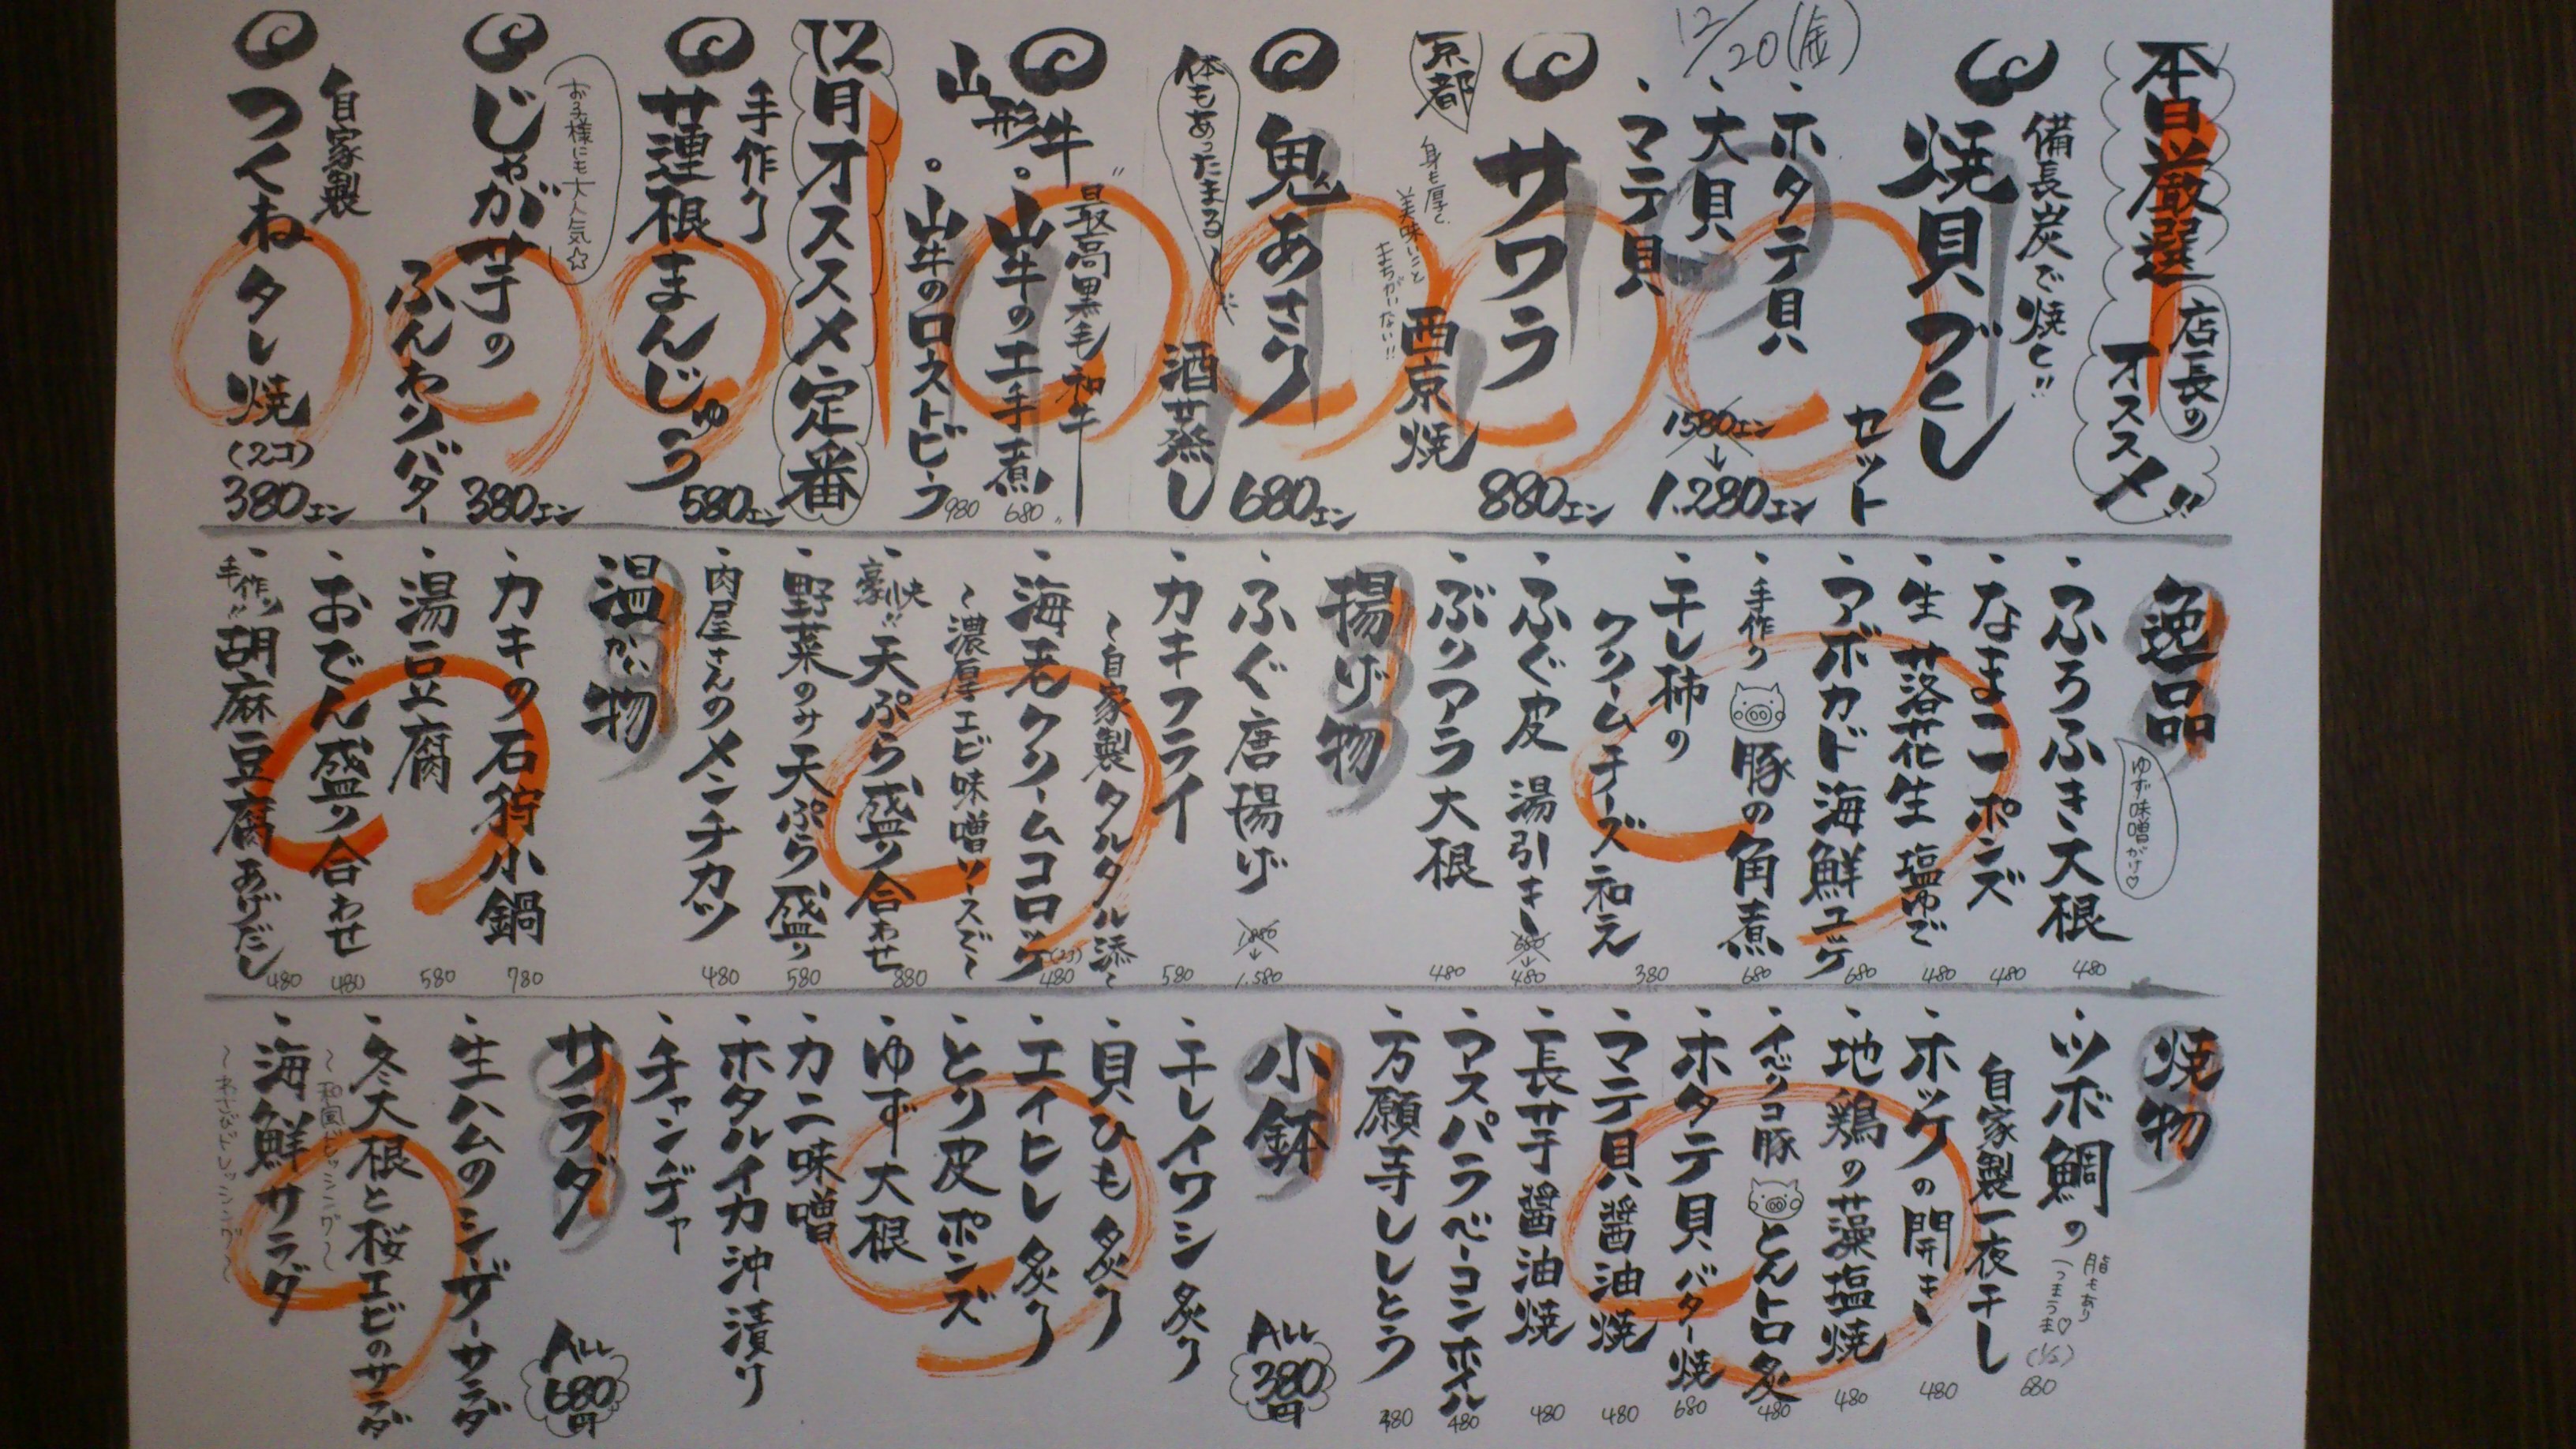 本日厳選
店長の
オススメ!!
備長炭で焼く!!
焼貝づくし
セット
12/20(金)
・ホタテ貝
・大貝
・マテ貝
1580エン
↓
1.280エン
サワラ
880エン
京都
身も厚く、
美味いこと
まちがいない!!
西京焼
鬼あさり
680エン
体もあったまる〜
酒蒸し
山形牛
"最高黒毛和牛"
・山牛のエ手煮 680
・山牛のロストビーフ 980
12月オススメ定番
手作り
蓮根まんじゅう
580エン
お子様にも大人気☆
じゃが芋の
380エン
ふんわりバター
自家製
つくねタレ焼
(2コ)
380エン
逸品
ゆず味噌がけ♡
・ふろふき大根 480
・なまこポンズ 480
・生落花生 塩ゆで 480
・アボカド海鮮ユッケ 680
・手作り 豚の角煮 680
・干し柿の
クリームチーズ和え 380
・ふぐ皮 湯引き 680→480
・ぶりアラ大根 480
揚げ物
・ふぐ唐揚げ 1.880→1.580
・カキフライ 580
〜自家製タルタル添〜
・海老クリームコロッケ (2コ) 480
〜濃厚エビ味噌ソースで〜
・豪快!!天ぷら盛り合わせ 880
・野菜のみ天ぷら盛り 580
・肉屋さんのメンチカツ 480
温かい物
・カキの石狩小鍋 780
・湯豆腐 580
・おでん盛り合わせ 480
・手作り!!胡麻豆腐あげだし 480
焼物
・ツボ鯛の
脂もあり
うまうま♡
(1/2)
自家製一夜干し 680
・ホッケの開き 480
・地鶏の藻塩焼 480
・イベリコ豚 とんトロ炙 480
・ホタテ貝バター焼 680
・マテ貝醤油焼 480
・長芋醤油焼 480
・アスパラベーコンホイル 480
・万願寺ししとう 380
小鉢
ALL
380円
・干しイワシ炙り
・貝ひも炙り
・エイヒレ炙り
・とり皮ポンズ
・ゆず大根
・カニ味噌
・ホタルイカ沖漬け
・チャンヂャ
サラダ
ALL
680円
・生ハムのシーザーサラダ
・冬大根と桜エビのサラダ
〜和風ドレッシング〜
・海鮮サラダ
〜わさびドレッシング〜